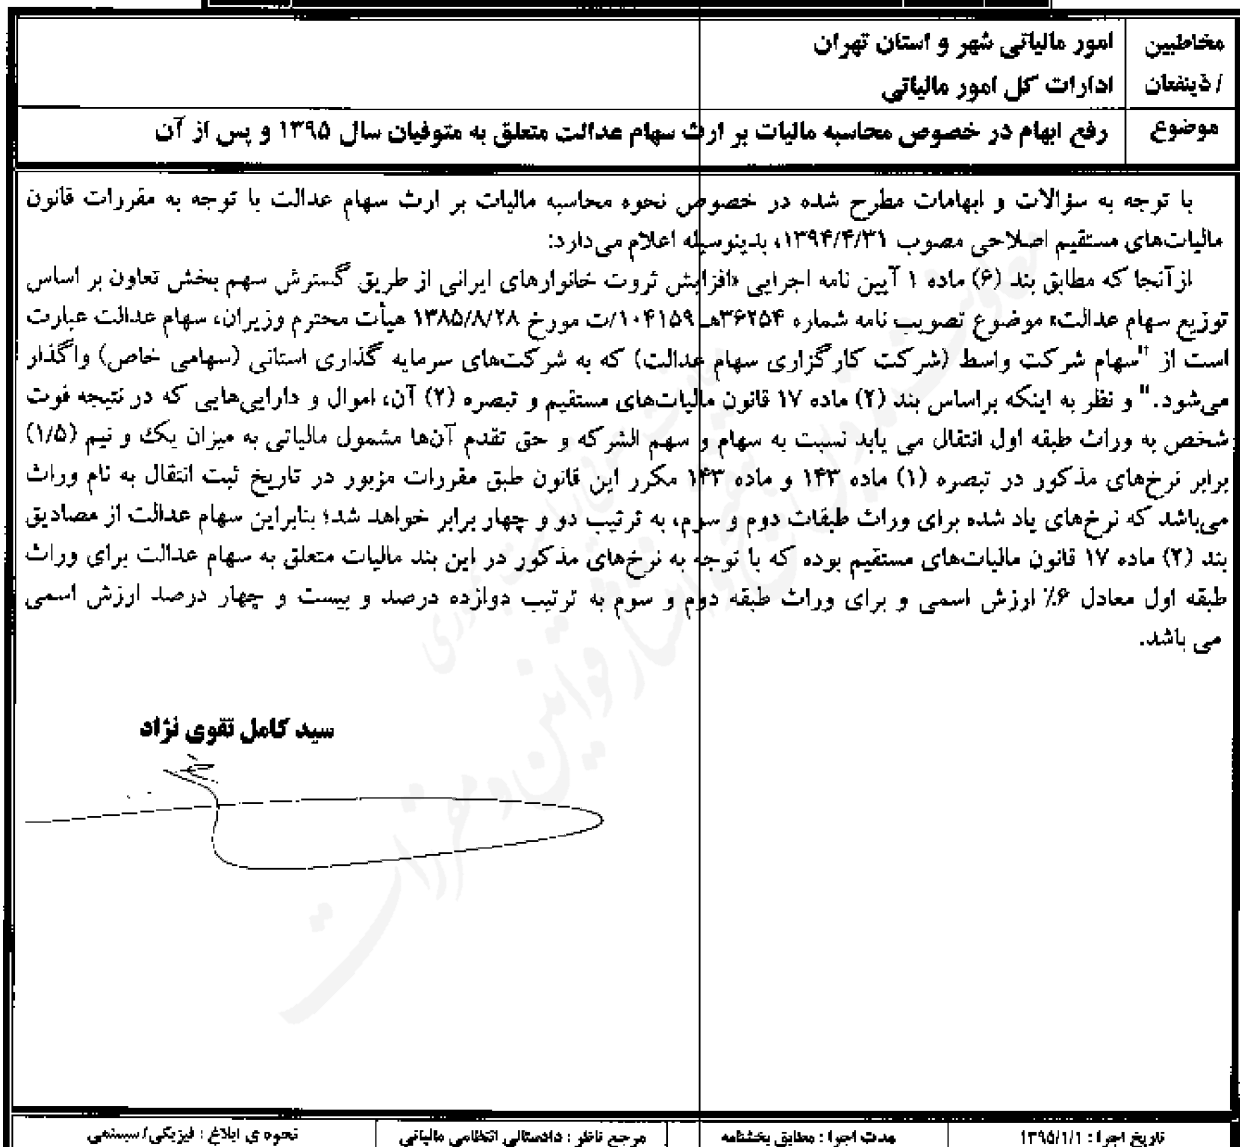 مخاطبین / ذینفعان
امور مالیاتی شهر و استان تهران
ادارات کل امور مالیاتی
موضوع
رفع ابهام در خصوص محاسبه مالیات بر ارث سهام عدالت متعلق به متوفیان سال ۱۳۹۵ و پس از آن
با توجه به سؤالات و ابهامات مطرح شده در خصوص نحوه محاسبه مالیات بر ارث سهام عدالت با توجه به مقررات قانون
مالیات‌های مستقیم اصلاحی مصوب ۱۳۹۴/۴/۳۱، بدینوسیله اعلام می‌دارد:
ازآنجا که مطابق بند (۶) ماده ۱ آیین نامه اجرایی «افزایش ثروت خانوارهای ایرانی از طریق گسترش سهم بخش تعاون بر اساس
توزیع سهام عدالت» موضوع تصویب نامه شماره ۳۶۲۵۴هـ ۱۰۴۱۵۹/ت مورخ ۱۳۸۵/۸/۲۸ هیأت محترم وزیران، سهام عدالت عبارت
است از "سهام شرکت واسط (شرکت کارگزاری سهام عدالت) که به شرکت‌های سرمایه گذاری استانی (سهامی خاص) واگذار
می‌شود." و نظر به اینکه براساس بند (۲) ماده ۱۷ قانون مالیات‌های مستقیم و تبصره (۲) آن، اموال و دارایی‌هایی که در نتیجه فوت
شخص به وراث طبقه اول انتقال می یابد نسبت به سهام و سهم الشرکه و حق تقدم آن‌ها مشمول مالیاتی به میزان یک و نیم (۱/۵)
برابر نرخ‌های مذکور در تبصره (۱) ماده ۱۴۳ و ماده ۱۴۳ مکرر این قانون طبق مقررات مزبور در تاریخ ثبت انتقال به نام وراث
می‌باشد که نرخ‌های یاد شده برای وراث طبقات دوم و سوم، به ترتیب دو و چهار برابر خواهد شد؛ بنابراین سهام عدالت از مصادیق
بند (۲) ماده ۱۷ قانون مالیات‌های مستقیم بوده که با توجه به نرخ‌های مذکور در این بند مالیات متعلق به سهام عدالت برای وراث
طبقه اول معادل ۶٪ ارزش اسمی و برای وراث طبقه دوم و سوم به ترتیب دوازده درصد و بیست و چهار درصد ارزش اسمی
می باشد.
سید کامل تقوی نژاد
تاریخ اجرا : ۱۳۹۵/۱/۱
مدت اجرا : مطابق بخشنامه
مرجع ناظر : دادستانی انتظامی مالیاتی
نحوه ی ابلاغ : فیزیکی/ سیستمی